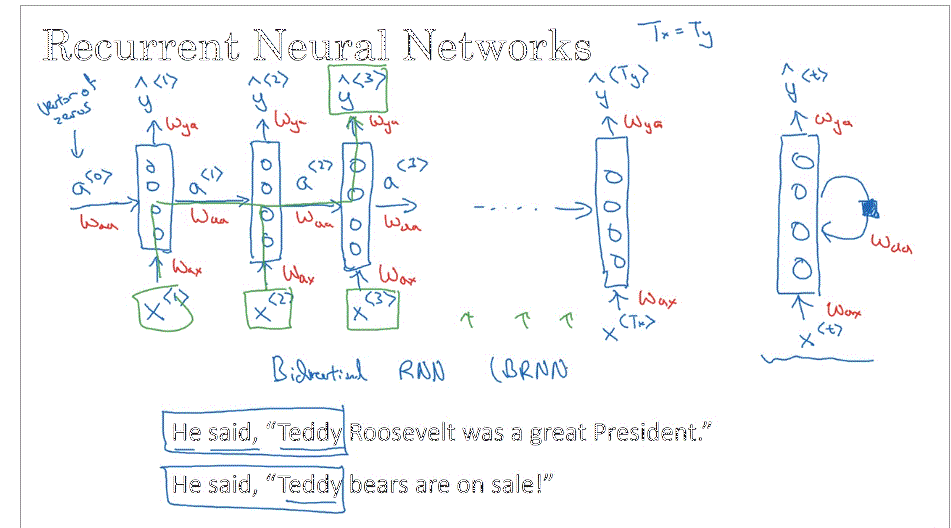 Recurrent Neural Networks
Tx = Ty
vector of zeros
ŷ<1> ŷ<2> ŷ<3> ŷ<Ty> ŷ<t>
Wya Wya Wya Wya Wya
a<0> a<1> a<2> a<3>
Waa Waa Waa Waa Waa
Wax Wax Wax Wax Wax
x<1> x<2> x<3> x<Tx> x<t>
Bidirectional RNN (BRNN
He said, “Teddy Roosevelt was a great President.”
He said, “Teddy bears are on sale!”